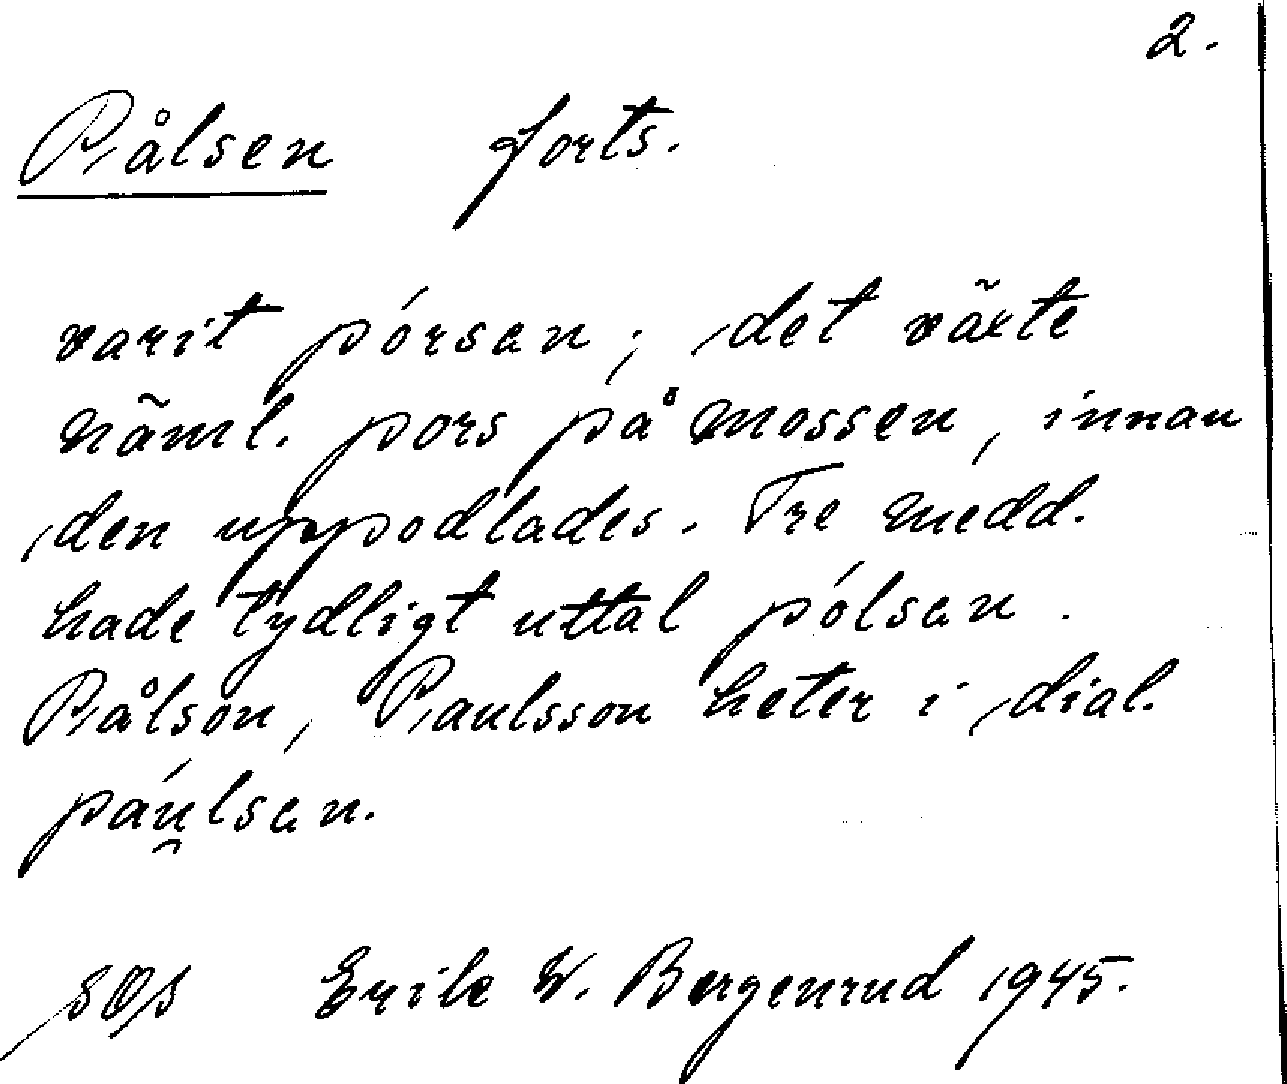 2.
Pålsen forts.
varit pórsan; det växte
näml. pors på mossen, innan
den uppodlades. Tre medd.
hade tydligt uttal pólsan.
Pålson, Paulsson heter i dial.
páu̯lsan.
SOS Erik W. Bergenrud 1945.